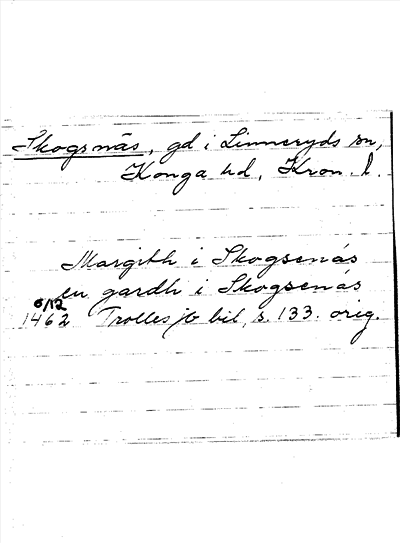 Skogsnäs, gd i Linneryds sn,
Konga hd, Kron. l.
Margith i Skogsenäs
en gardh i Skogsenäs
6/12
1462 Trolles jb bil, s. 133. orig.